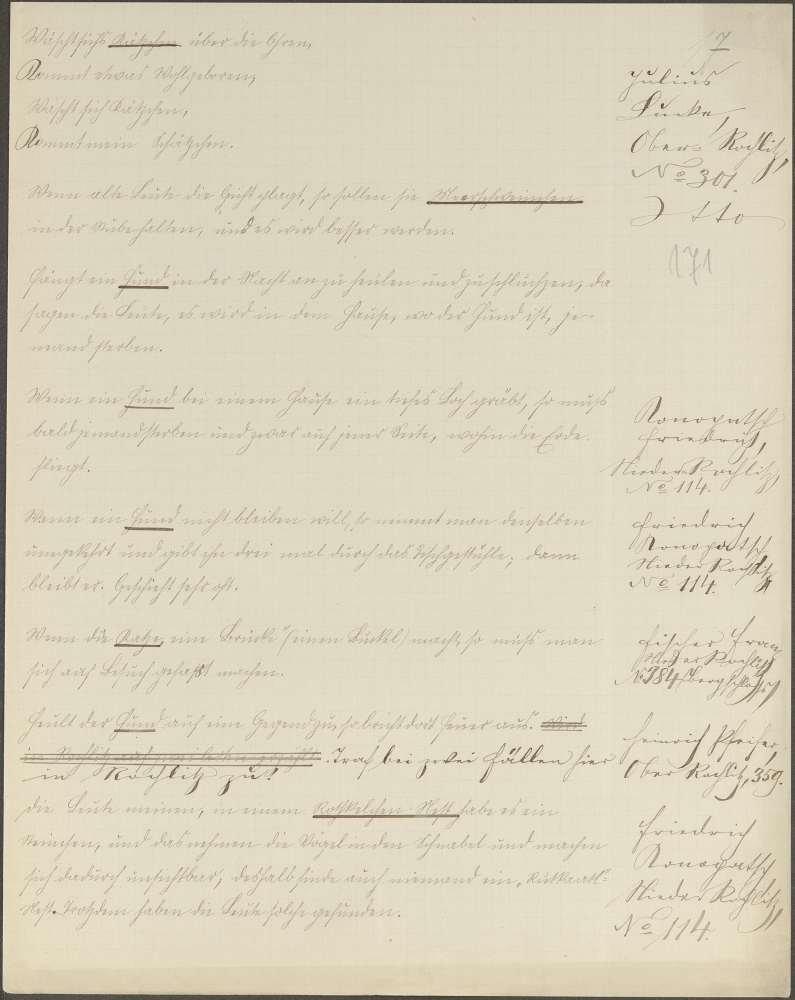 17
Wäscht sichs Kätzchen über die Ohren,
Kommt etwas Wohlgeboren;
Wäscht sich Kätzchen,
Kommt mein Schätzchen.
Julius
Lucke,
Ober-Rochlitz,
No 301.
Otto
171
Wenn alte Leute die Gicht plagt, so sollen sie Meerschweinchen
in der Stube halten, und es wird besser werden.
Fängt ein Hund in der Nacht an zu heulen und zu schluchzen, da
sagen die Leute, es wird in dem Hause, wo der Hund ist, je-
mand sterben.
Wenn ein Hund bei einem Hause ein tiefes Loch gräbt, so muß
bald jemand sterben und zwar auf jener Seite, wohin die Erde
fliegt.
Konopatsch
Friedrich,
Nieder Rochlitz,
No 114.
Wenn ein Hund nicht bleiben will, so nimmt man denselben
umgekehrt und gibt ihn drei mal durch das Tischgestühle; dann
bleibt er. Geschieht sehr oft.
Friedrich
Konopatsch
Nieder Rochlitz
No 114.
Wenn die Katze eine Brücke (einen Buckel) macht, so muß man
sich auf Besuch gefaßt machen.
Fischer Franz
Nieder Rochlitz
No 384
Heult der Hund auf eine Gegend zu, so bricht dort Feuer aus. Wird
in Rochlitz
. Traf bei zwei Fällen hier
in Rochlitz zu!
Heinrich Pfeifer,
Ober Rochlitz, 359.
Die Leute meinen, in einem Rotkelchen-Nest habe es ein
Steinchen, und das nehmen die Vögel in den Schnabel und machen
sich dadurch unsichtbar; deshalb finde auch niemand ein
Nest. Trotzdem haben die Leute solche gefunden.
Friedrich
Konopatsch
Nieder Rochlitz
No 114.